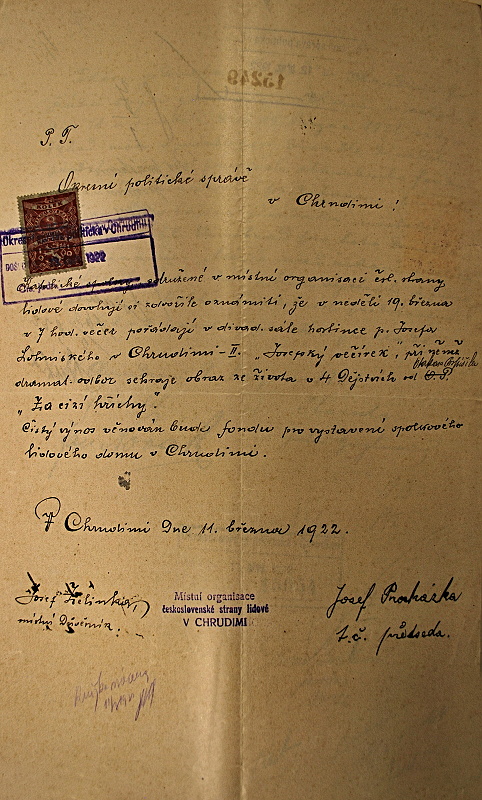 15249
P. T.
Okresní politické správě
v Chrudimi!
Okresní správa politická v Chrudimi
1922
Katolické spolky sdružené v místní organisaci čsl. strany
lidové dovolují si zdvořile oznámiti, že v neděli 19. března
v 7 hod. večer pořádají v divad. sále hostince p. Josefa
v Chrudimi-II. „Josefský večírek", při němž
dramat. odbor sehraje obraz ze života v 4 dějstvích od
„Za cizí hříchy".
Čistý výnos věnován bude fondu pro vystavení spolkového
lidového domu v Chrudimi.
V Chrudimi dne 11. března 1922.
Josef Zelinka,
místní důvěrník.
Místní organisace
československé strany lidové
V CHRUDIMI
Josef Procházka
t. č. předseda.